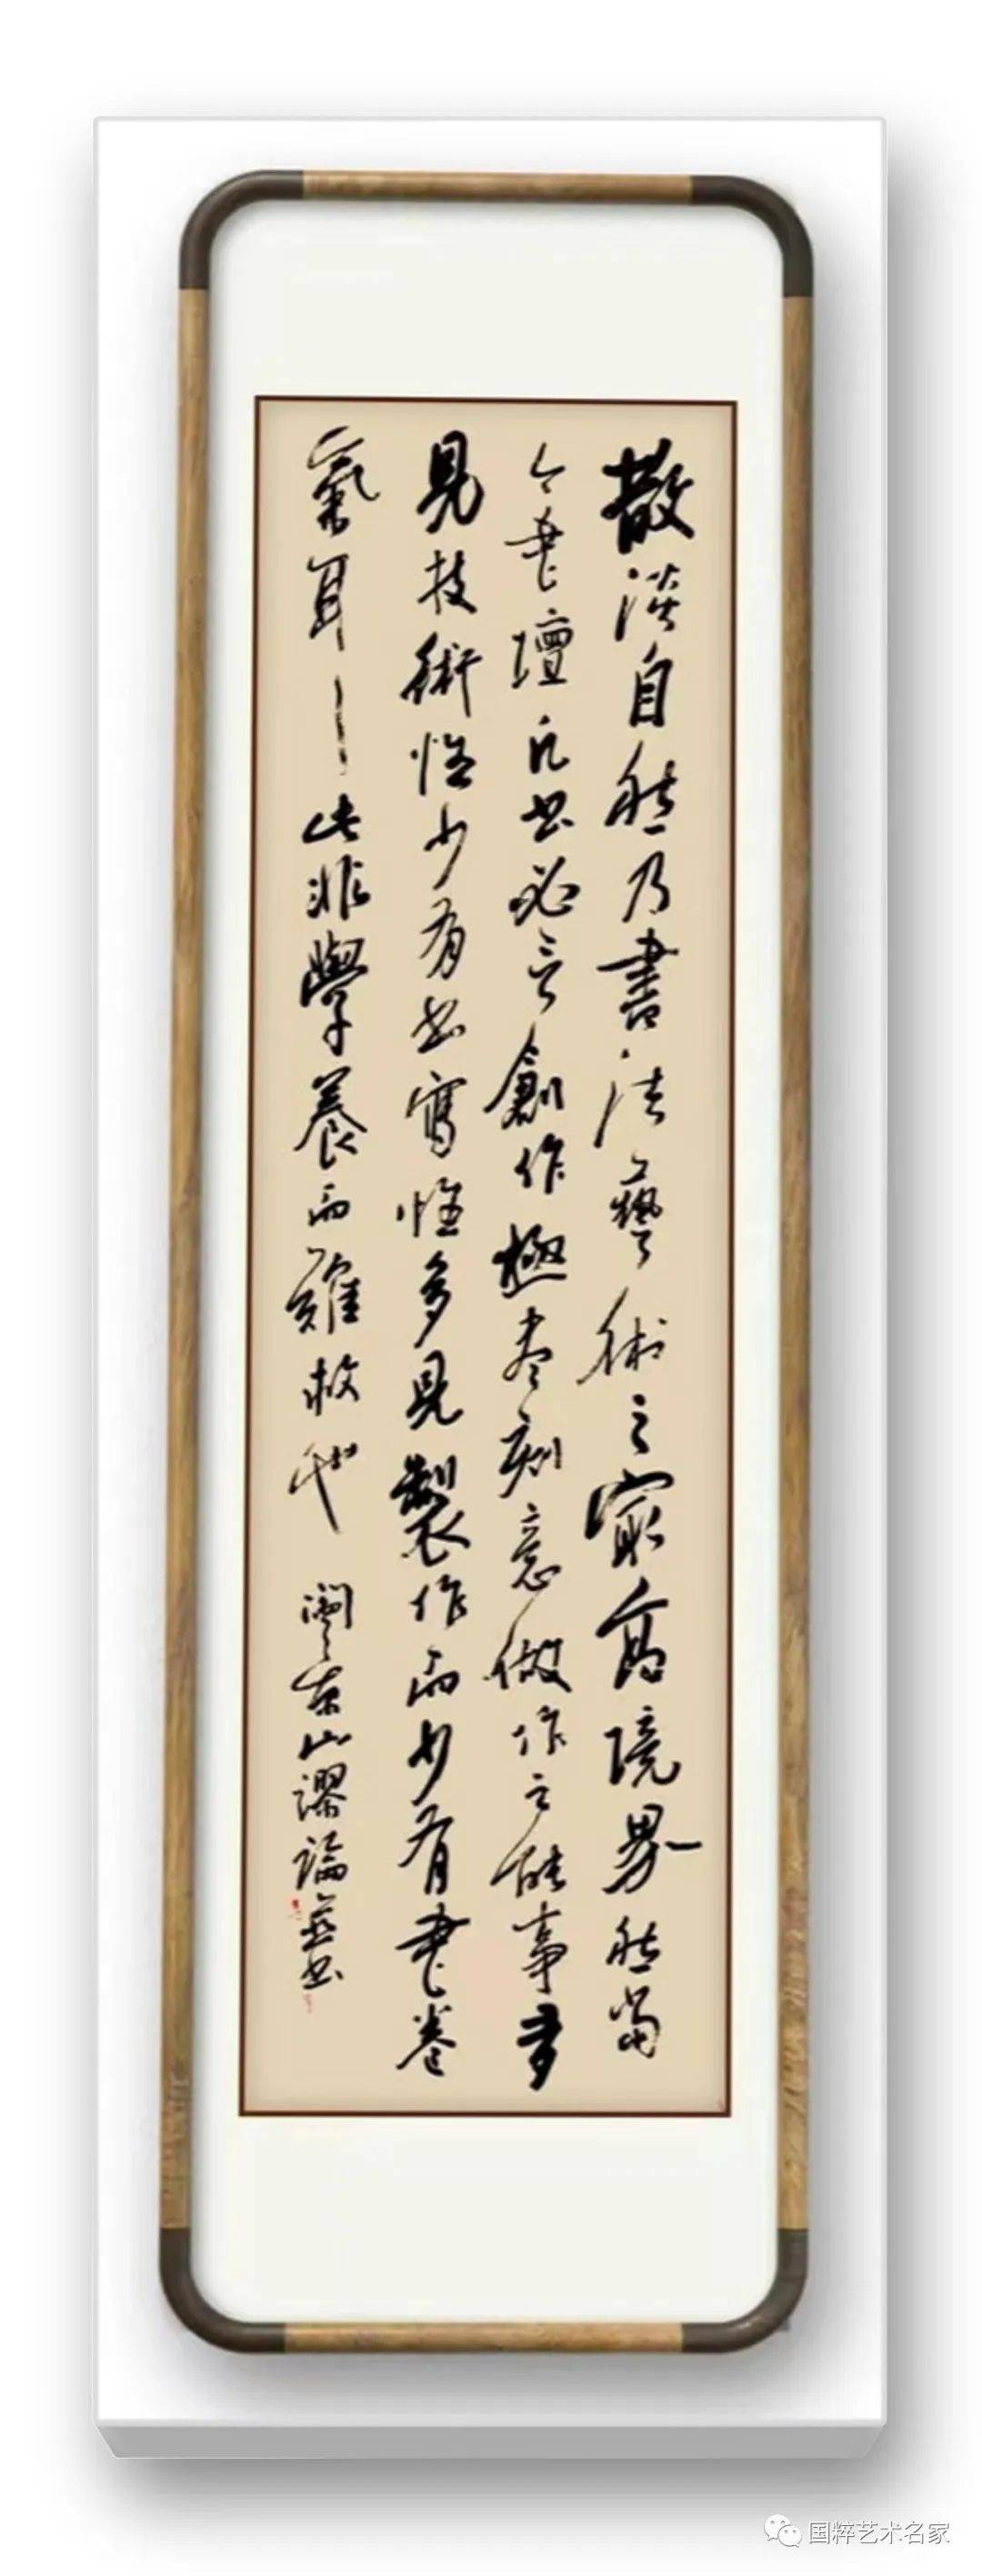 散淡自然乃書法藝術之最高境界然當
今書壇凡出必言創作極尽刻意做作之能事多
見技術性少有書寫性多見製作而少有書卷
氣耳此非學養而難救也
闽東山謬論並書
国粹艺术名家